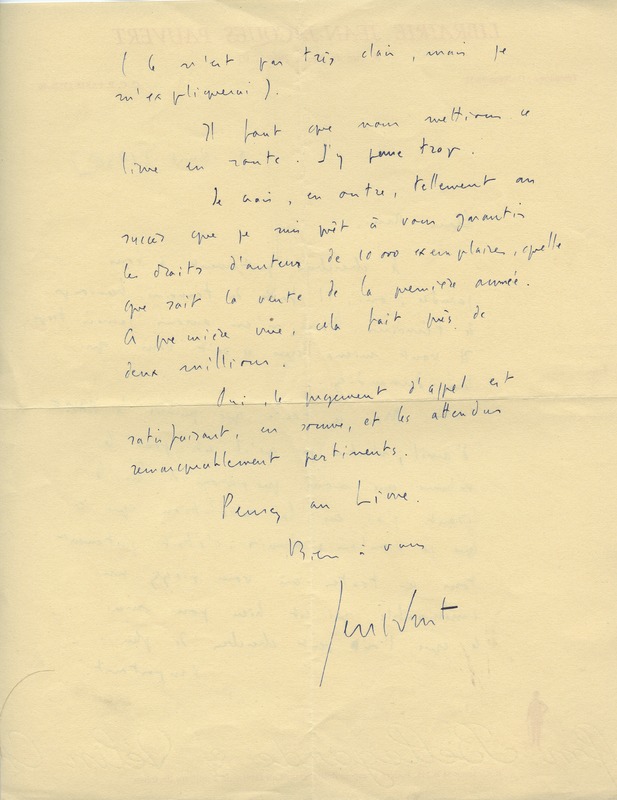 ( Ce n'est pas très clair, mais je
m'expliquerai ).
Il faut que nous mettions ce
livre en route. J'y pense trop.
Je crois, en outre, tellement au
succès que je suis prêt à vous garantir
les droits d'auteur de 10 000 exemplaires, quelle
que soit la vente de la première année.
A première vue, cela fait près de
deux millions.
Oui, le jugement d'appel est
satisfaisant, en somme, et les attendus
remarquablement pertinents.
Pensez au Livre.
Bien à vous
LIBRAIRIE JEAN-JACQUES PAUVERT